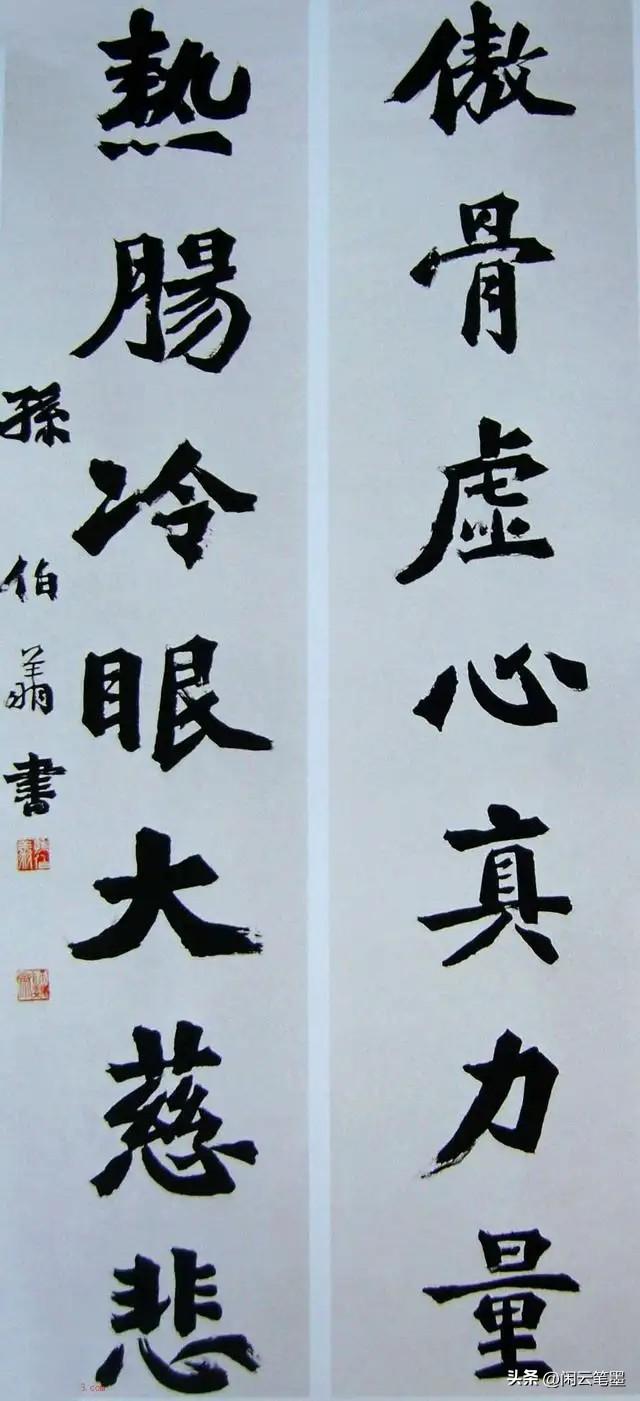 傲骨虚心真力量
熱腸冷眼大慈悲
孫伯翔書
3.com
头条 @闲云笔墨